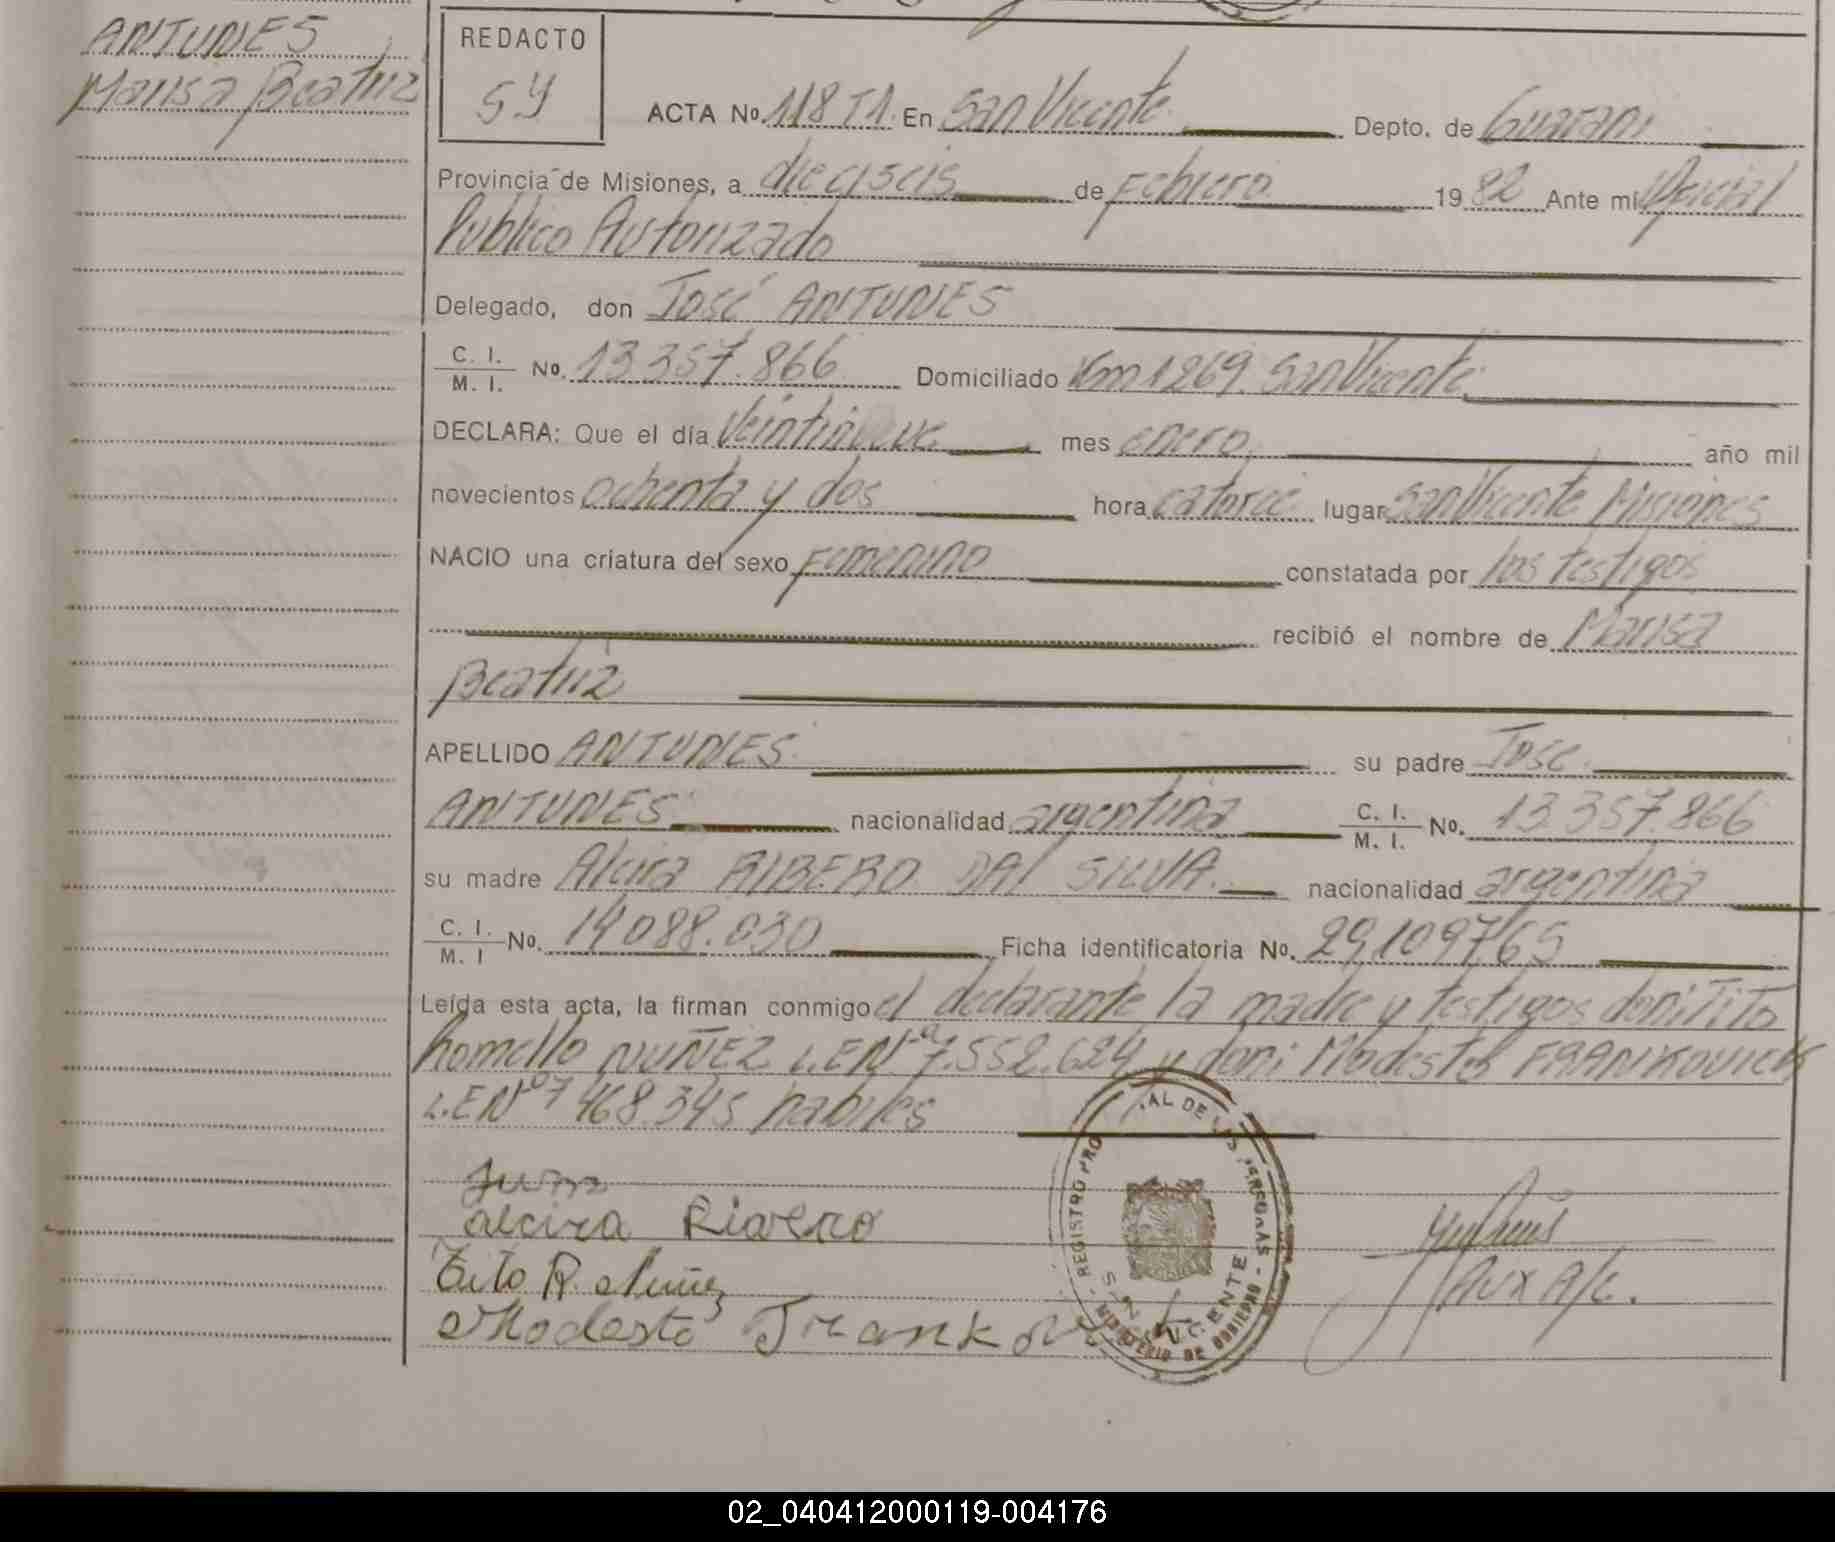 ANTUNES
Marisa Beatriz
REDACTO
SY
ACTA No. 118 T1. En San Vicente Depto. de Guaraní
Provincia de Misiones, a dieciseis de Febrero 1982 Ante mi Oficial
Público Autorizado
Delegado, don José ANTUNES
C. I. / M. I. No. 13.357.866 Domiciliado Km 1269. San Vicente.
DECLARA: Que el día Veintinueve mes enero año mil
novecientos ochenta y dos hora catorce lugar San Vicente Misiones
NACIO una criatura del sexo Femenino constatada por los testigos
recibió el nombre de Marisa
Beatriz
APELLIDO ANTUNES su padre José
ANTUNES nacionalidad argentina C. I. / M. I. No. 13.357.866
su madre Alcira RIBERO DA SILVA. nacionalidad argentina
C. I. / M. I No. 14.088.030 Ficha identificatoria No. 29.109765
Leída esta acta, la firman conmigo el declarante la madre y testigos don: Tito
Romello NUÑEZ L.E Nº 7.552.624 y don: Modesto FRANKOVICH
L.E Nº 7 468.345 habiles
alcira Rivero
Tito R. Nuñez
Modesto Frankovich
Aux A/c.
REGISTRO PRO AL DE LAS PERSONAS - MINISTERIO DE GOBIERNO -
SAN VICENTE
02_040412000119-004176